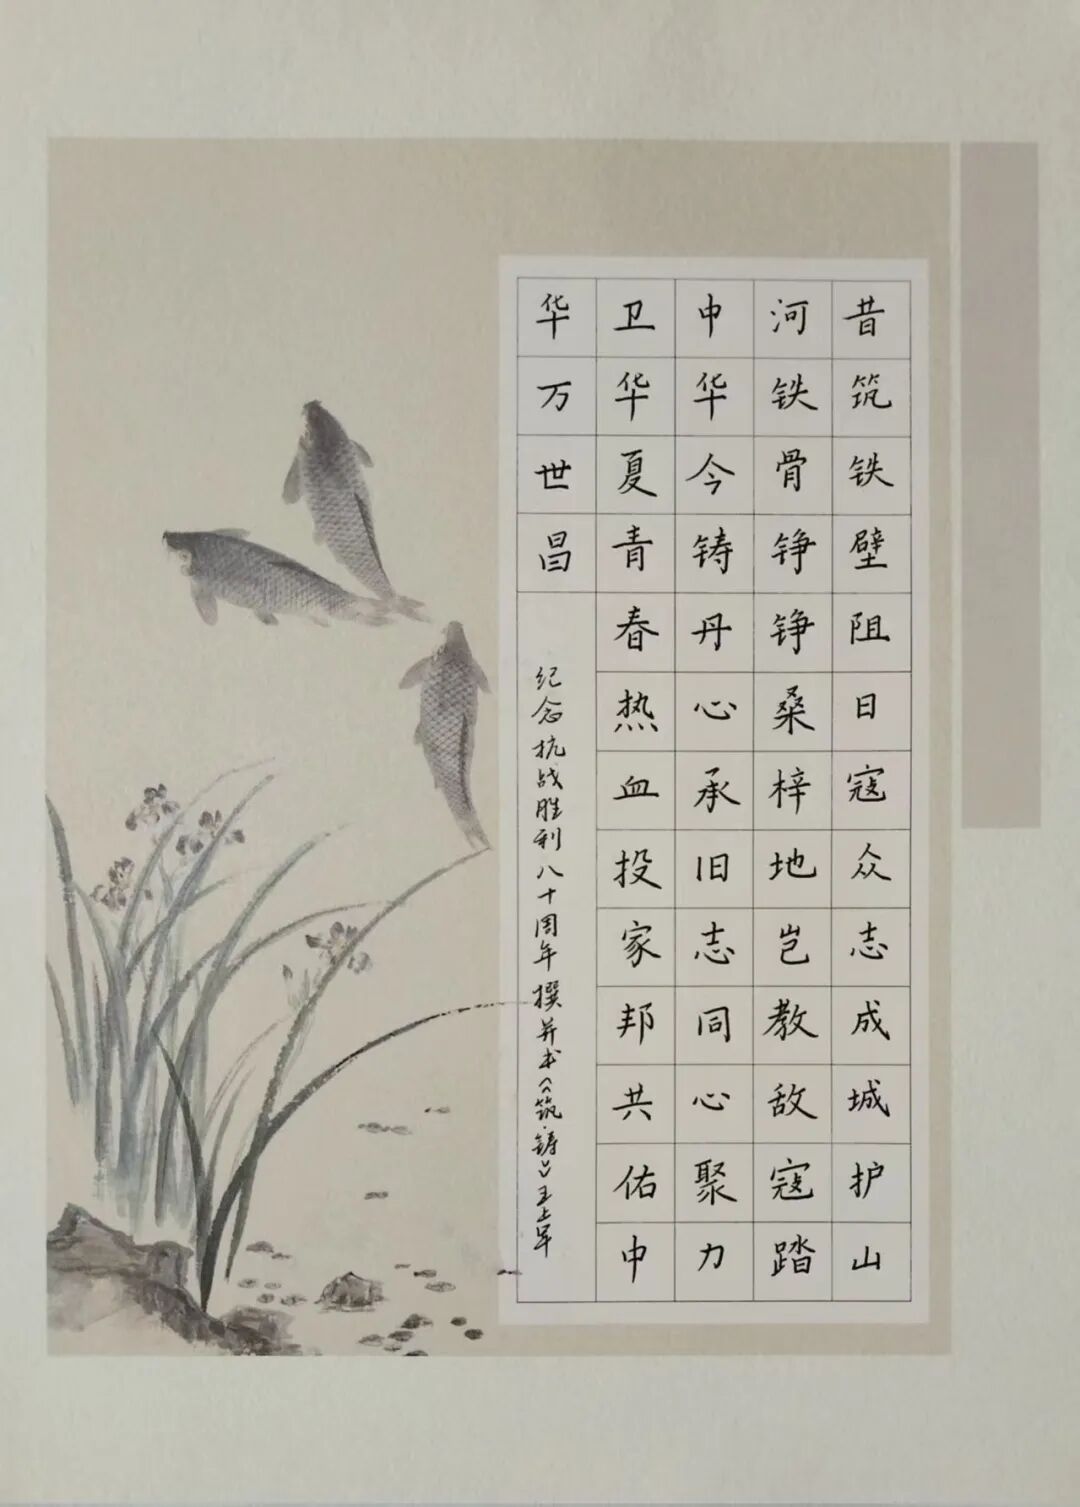 昔筑铁壁阻日寇众志成城护山
河铁骨铮铮桑梓地岂教敌寇踏
中华今铸丹心承旧志同心聚力
卫华夏青春热血投家邦共佑中
华万世昌
纪念抗战胜利八十周年撰并书《筑·铸》王上早